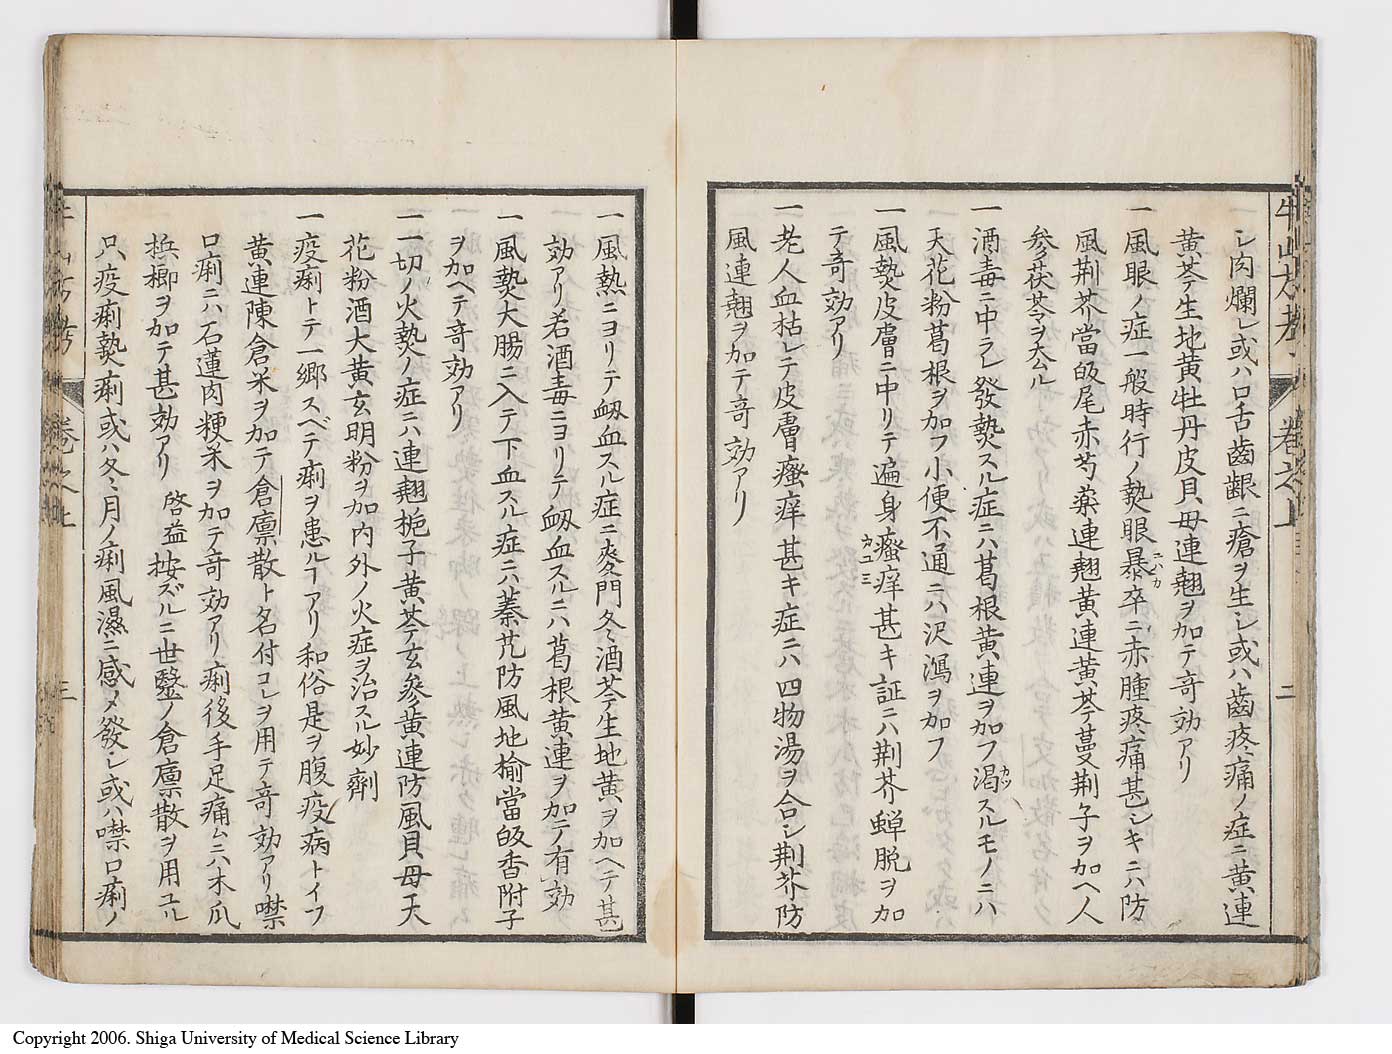 シ肉爛レ或ハ口舌齒齦ニ瘡ヲ生シ或ハ齒疼痛ノ症ニ黄連
黄芩生地黄牡丹皮貝母連翹ヲ加テ竒効アリ
一風眼ノ症一般時行ノ𤍠眼暴卒ニ赤腫疼痛甚シキニハ防
ニハカ
風荆芥當皈尾赤芍薬連翹黄連黄芩蔓荆子ヲ加ヘ人
参茯苓ヲ去ル
一酒毒ニ中ラレ發𤍠スル症ニハ葛根黄連ヲ加フ渇スルモノニハ
カツ
天花粉葛根ヲ加フ小便不通ニハ沢瀉ヲ加フ
一風𤍠皮膚ニ中リテ遍身瘙痒甚キ証ニハ荆芥蝉脱ヲ加
カユミ
テ竒効アリ
一老人血枯レテ皮膚瘙痒甚キ症ニハ四物湯ヲ合シ荆芥防
風連翹ヲ加テ竒効アリ
牛山方考 卷之上 二
一風熱ニヨリテ衂血スル症ニ麥門冬酒芩生地黄ヲ加ヘテ甚
効アリ若酒毒ニヨリテ衂血スルニハ葛根黄連ヲ加テ有効
一風𤍠大腸ニ入テ下血スル症ニハ蓁艽防風地榆當皈香附子
ヲ加ヘテ竒効アリ
一一切ノ火𤍠ノ症ニハ連翹梔子黄芩玄參黄連防風貝母天
花粉酒大黄玄明粉ヲ加内外ノ火症ヲ治スル妙劑
一疫痢トテ一郷スベテ痢ヲ患ルヿアリ和俗是ヲ腹疫病トイフ
黄連陳倉米ヲ加テ倉廪散ト名付コレヲ用テ竒効アリ噤
口痢ニハ石蓮肉粳米ヲ加テ竒効アリ痢後手足痛ムニハ木瓜
梹榔ヲ加テ甚効アリ 啓益按ズルニ世醫ノ倉廪散ヲ用ユル
只疫痢𤍠痢或ハ冬月ノ痢風濕ニ感メ發シ或ハ噤口痢ノ
牛山方考 卷之上 三
Copyright 2006. Shiga University of Medical Science Library